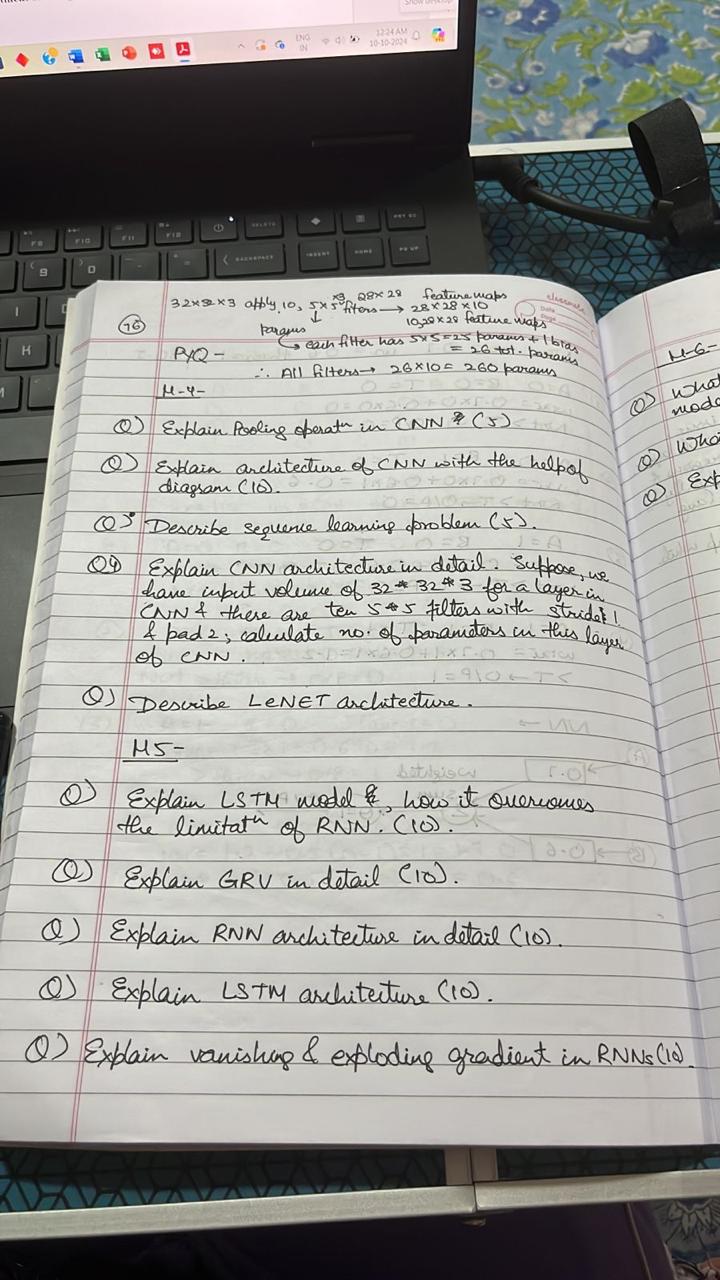 ENG
IN
12:24 AM
10-10-2024
F8
F10
F11
F12
DELETE
PRT SC
9
0
BACKSPACE
INSERT
HOME
PG UP
I
K
M
classmate
Date
Page
76
32x32x3 apply 10, 5x5x3 filters → 28x28 feature maps
28x28x10
10, 28x28 feature maps
Params
each filter has 5x5=25 params + 1 bias
= 26 tot. params
∴ All filters → 26x10 = 260 params
PYQ -
M-4-
Q) Explain Pooling operatn in CNN ? (5)
Q) Explain architecture of CNN with the help of
diagram (10).
Q3 Describe sequence learning problem (5).
Q4 Explain CNN architecture in detail. Suppose, we
have input volume of 32*32*3 for a layer in
CNN & there are ten 5*5 filters with stride 1
& pad 2; calculate no. of parameters in this layer
of CNN.
Q) Describe LeNET architecture.
M5-
Q) Explain LSTM model &, how it overcomes
the limitatn of RNN. (10).
Q) Explain GRU in detail (10).
Q) Explain RNN architecture in detail (10).
Q) Explain LSTM architecture (10).
Q) Explain vanishing & exploding gradient in RNNs (10).
M-6-
Q)
Q)
Q)